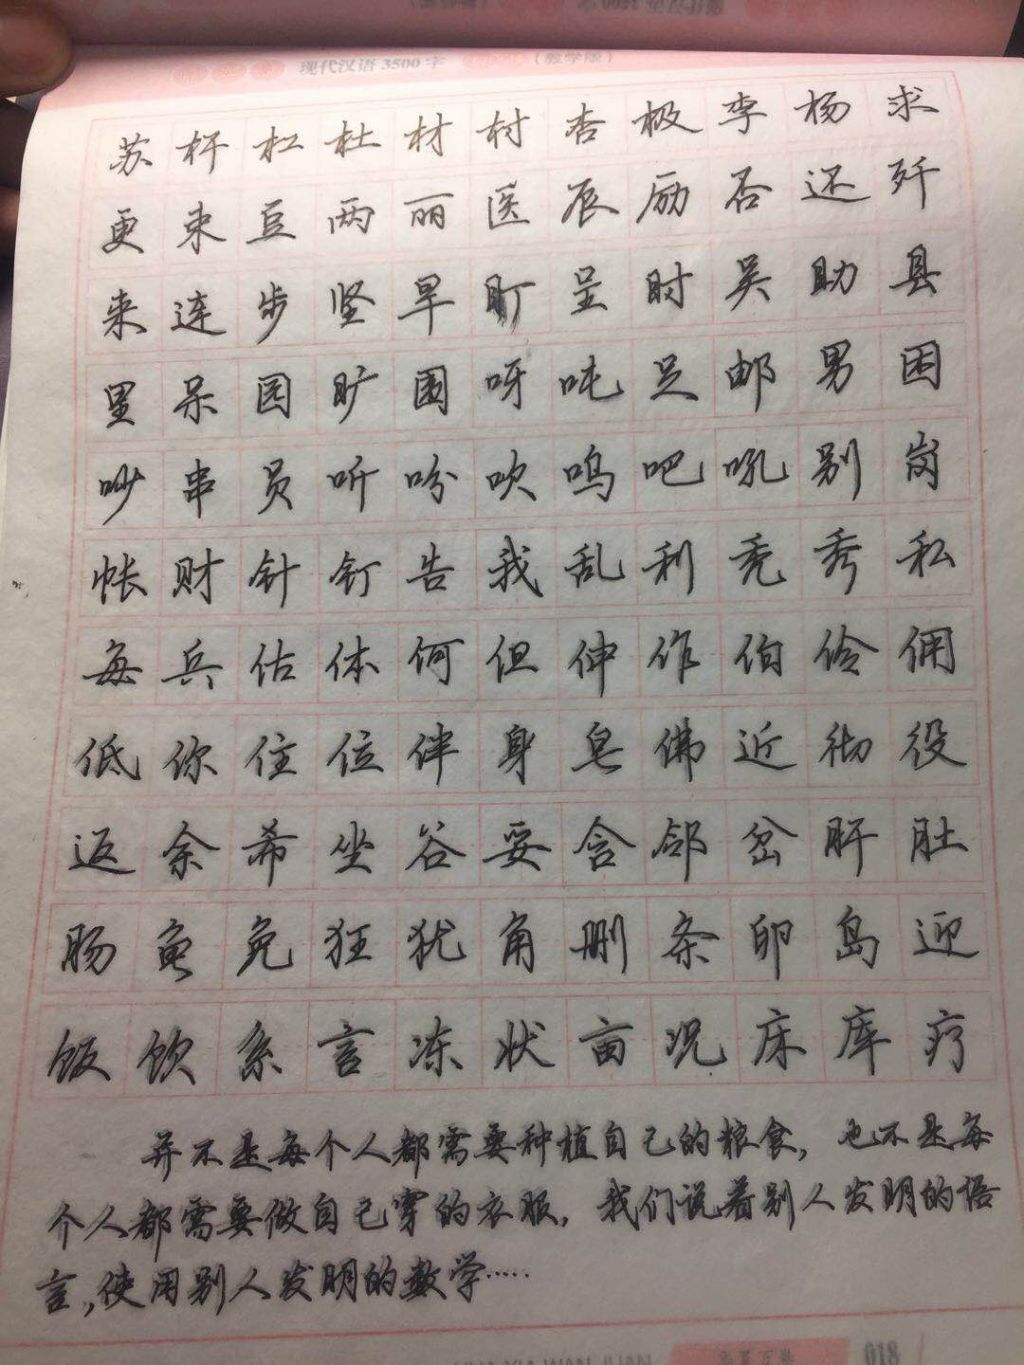 现代汉语3500字 (教学版)
苏杆杠杜材村杏极李杨求
更束豆两丽医辰励否还歼
来连步坚旱盯呈时吴助县
里呆园旷围呀吨足邮男困
吵串员听吩吹鸣吧吼别岗
帐财针钉告我乱利秃秀私
每兵估体何但伸作伯伶佣
低你住位伴身皂佛近彻役
返余希坐谷妥含邻岔肝肚
肠龟免狂犹角删条卵岛迎
饭饮系言冻状亩况床库疗
并不是每个人都需要种植自己的粮食，也不是每
个人都需要做自己穿的衣服，我们说着别人发明的语
言，使用别人发明的数学……
018